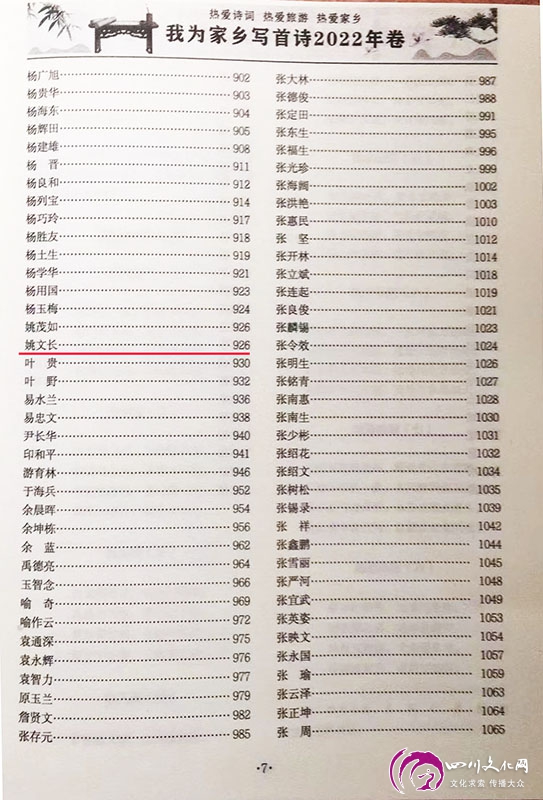 热爱诗词 热爱旅游 热爱家乡
我为家乡写首诗2022年卷
杨广旭 902
杨贵华 903
杨海东 904
杨辉田 905
杨建雄 908
杨 晋 911
杨良和 912
杨列宝 914
杨巧玲 917
杨胜友 918
杨土生 919
杨学华 921
杨用国 923
杨玉梅 924
姚茂如 926
姚文长 926
叶 贵 930
叶 野 932
易水兰 936
易忠文 938
尹长华 940
印和平 941
游育林 946
于海兵 952
余晨晖 954
余坤栋 956
余 蓝 962
禹德亮 964
玉智念 966
喻 奇 969
喻作云 972
袁通深 975
袁水辉 976
袁智力 977
原玉兰 979
詹贤文 982
张存元 985
张大林 987
张德俊 988
张定田 991
张东生 995
张福生 996
张光珍 999
张海阔 1002
张洪艳 1003
张惠民 1010
张 坚 1012
张开林 1014
张立斌 1018
张连起 1019
张良俊 1021
张麟锡 1023
张令效 1024
张明生 1026
张铭青 1027
张南惠 1028
张南生 1030
张少彬 1031
张绍花 1032
张绍文 1034
张树松 1035
张锡录 1039
张 祥 1042
张鑫鹏 1044
张雪丽 1045
张严河 1048
张宜武 1049
张英姿 1053
张映文 1054
张永国 1057
张 瑜 1059
张云泽 1063
张正坤 1064
张 周 1065
·7·
四川文化网
文化求索 传播大众